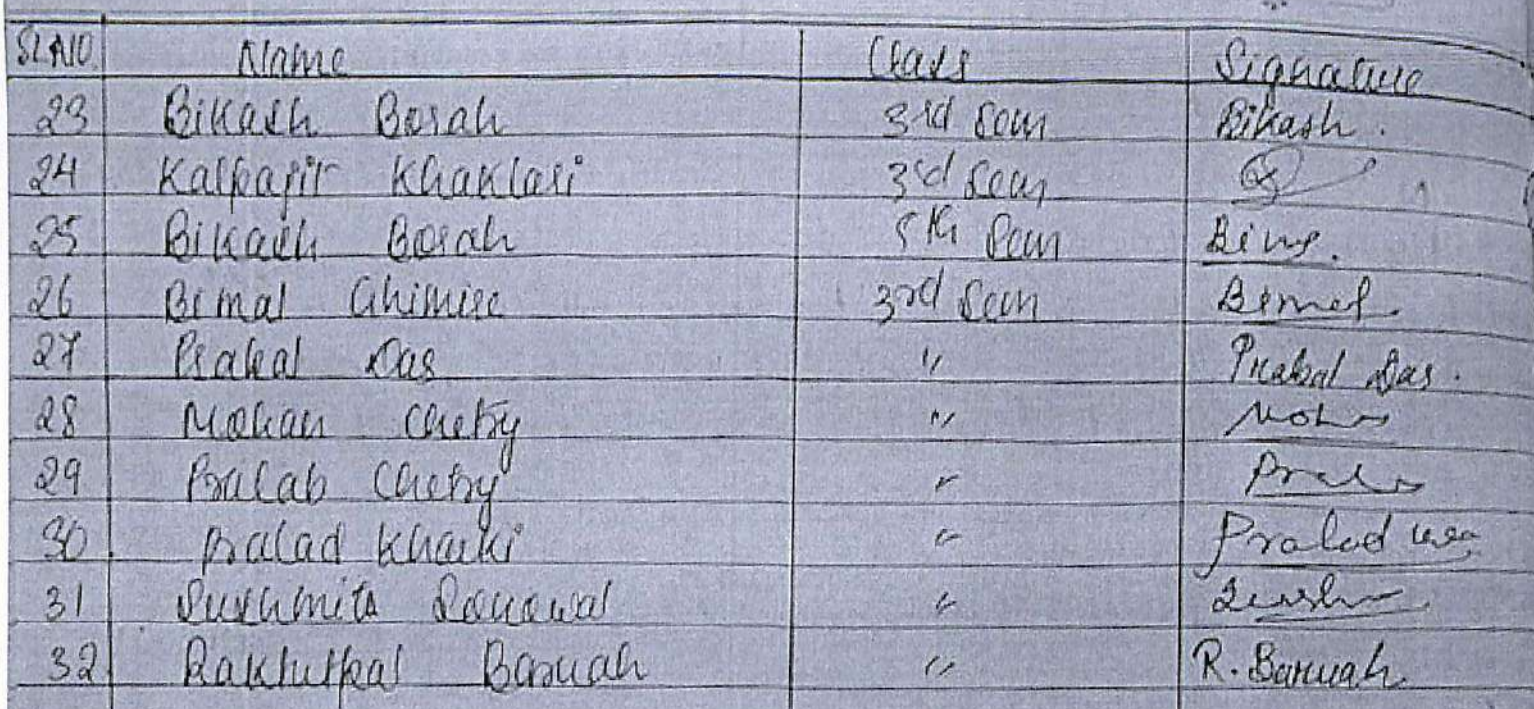 SL.NO. Name Class Signature
23 Bikash Borah 3rd Sem Bikash.
24 Kalpajit Khaklari 3rd Sem
25 Bikash Borah 5th Sem
26 Bimal Ghimire 3rd Sem Bimal.
27 Prabal Das " Prabal Das.
28 Mohan Chetry "
29 Pralab Chetry "
30 Pralad Kharki " Pralad
31 Sushmita Sonowal "
32 Baruah " R. Baruah